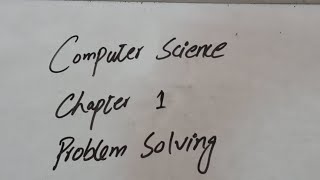 Computer Science
Chapter 1
Problem Solving